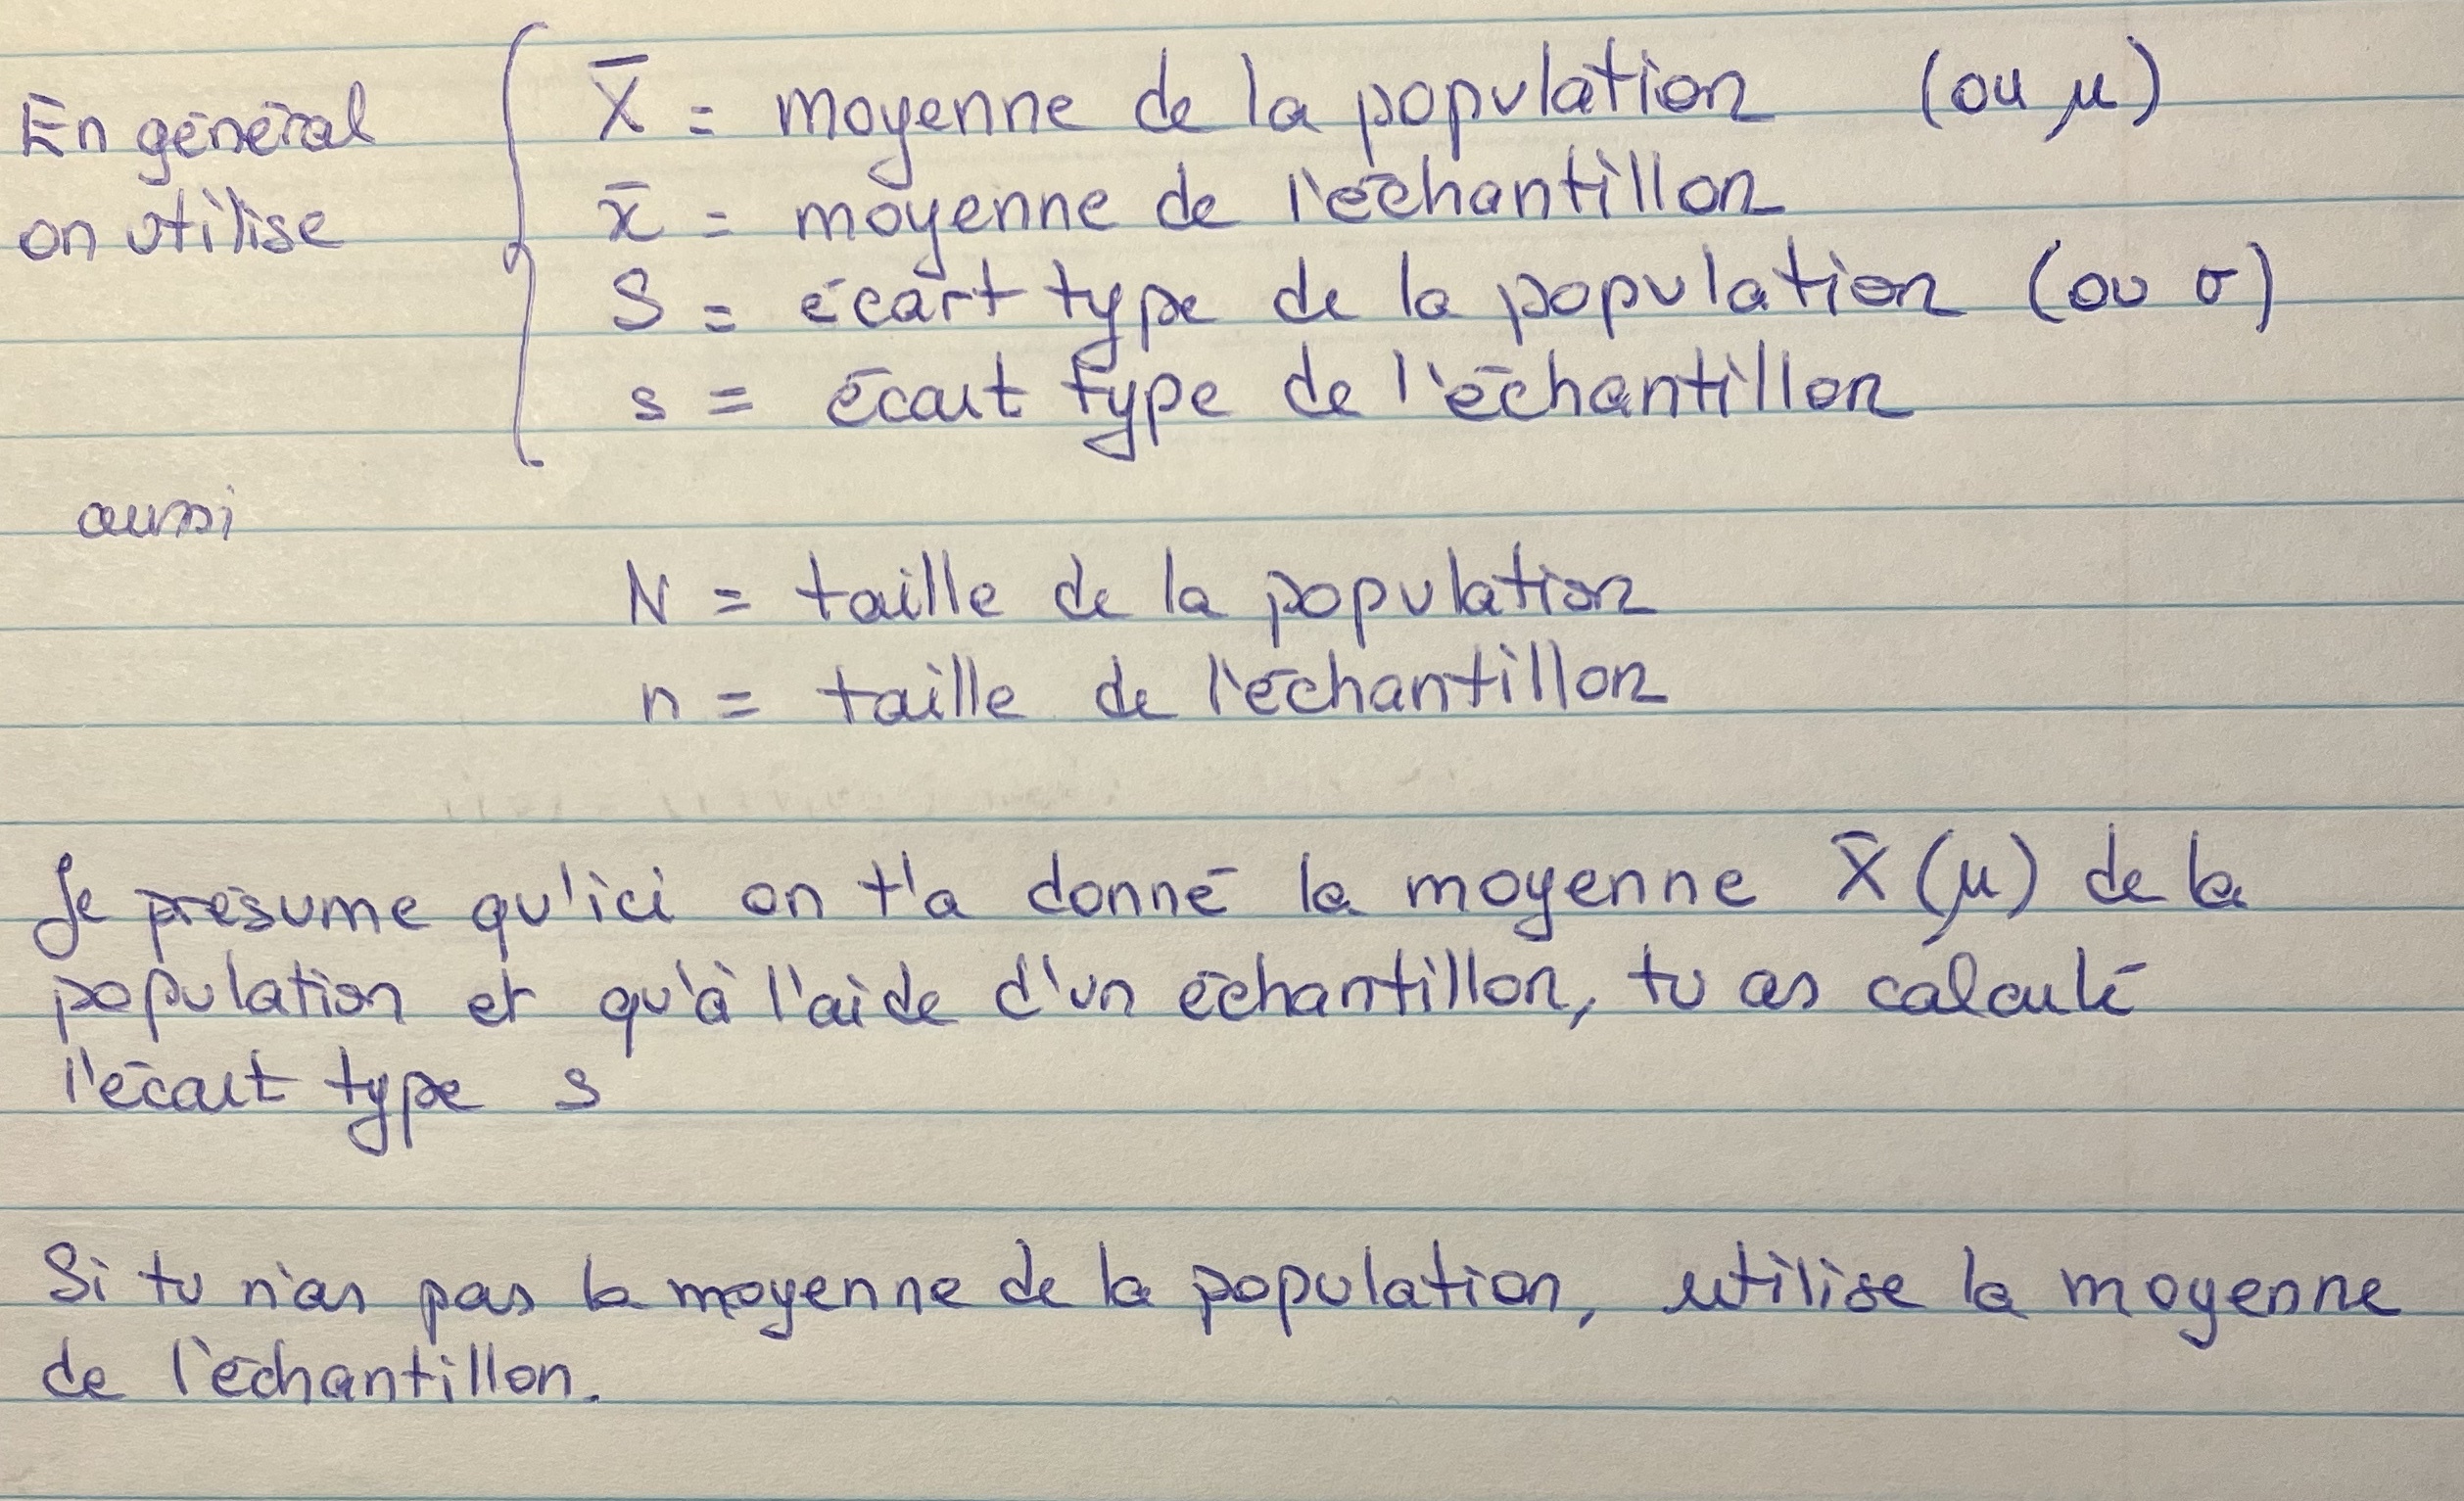 En général
on utilise
X̄ = moyenne de la population (ou μ)
x̄ = moyenne de l'échantillon
S = écart type de la population (ou σ)
s = écart type de l'échantillon
aussi
N = taille de la population
n = taille de l'échantillon
Je présume qu'ici on t'a donné la moyenne X̄ (μ) de la
population et qu'à l'aide d'un échantillon, tu as calculé
l'écart type s
Si tu n'as pas la moyenne de la population, utilise la moyenne
de l'échantillon.